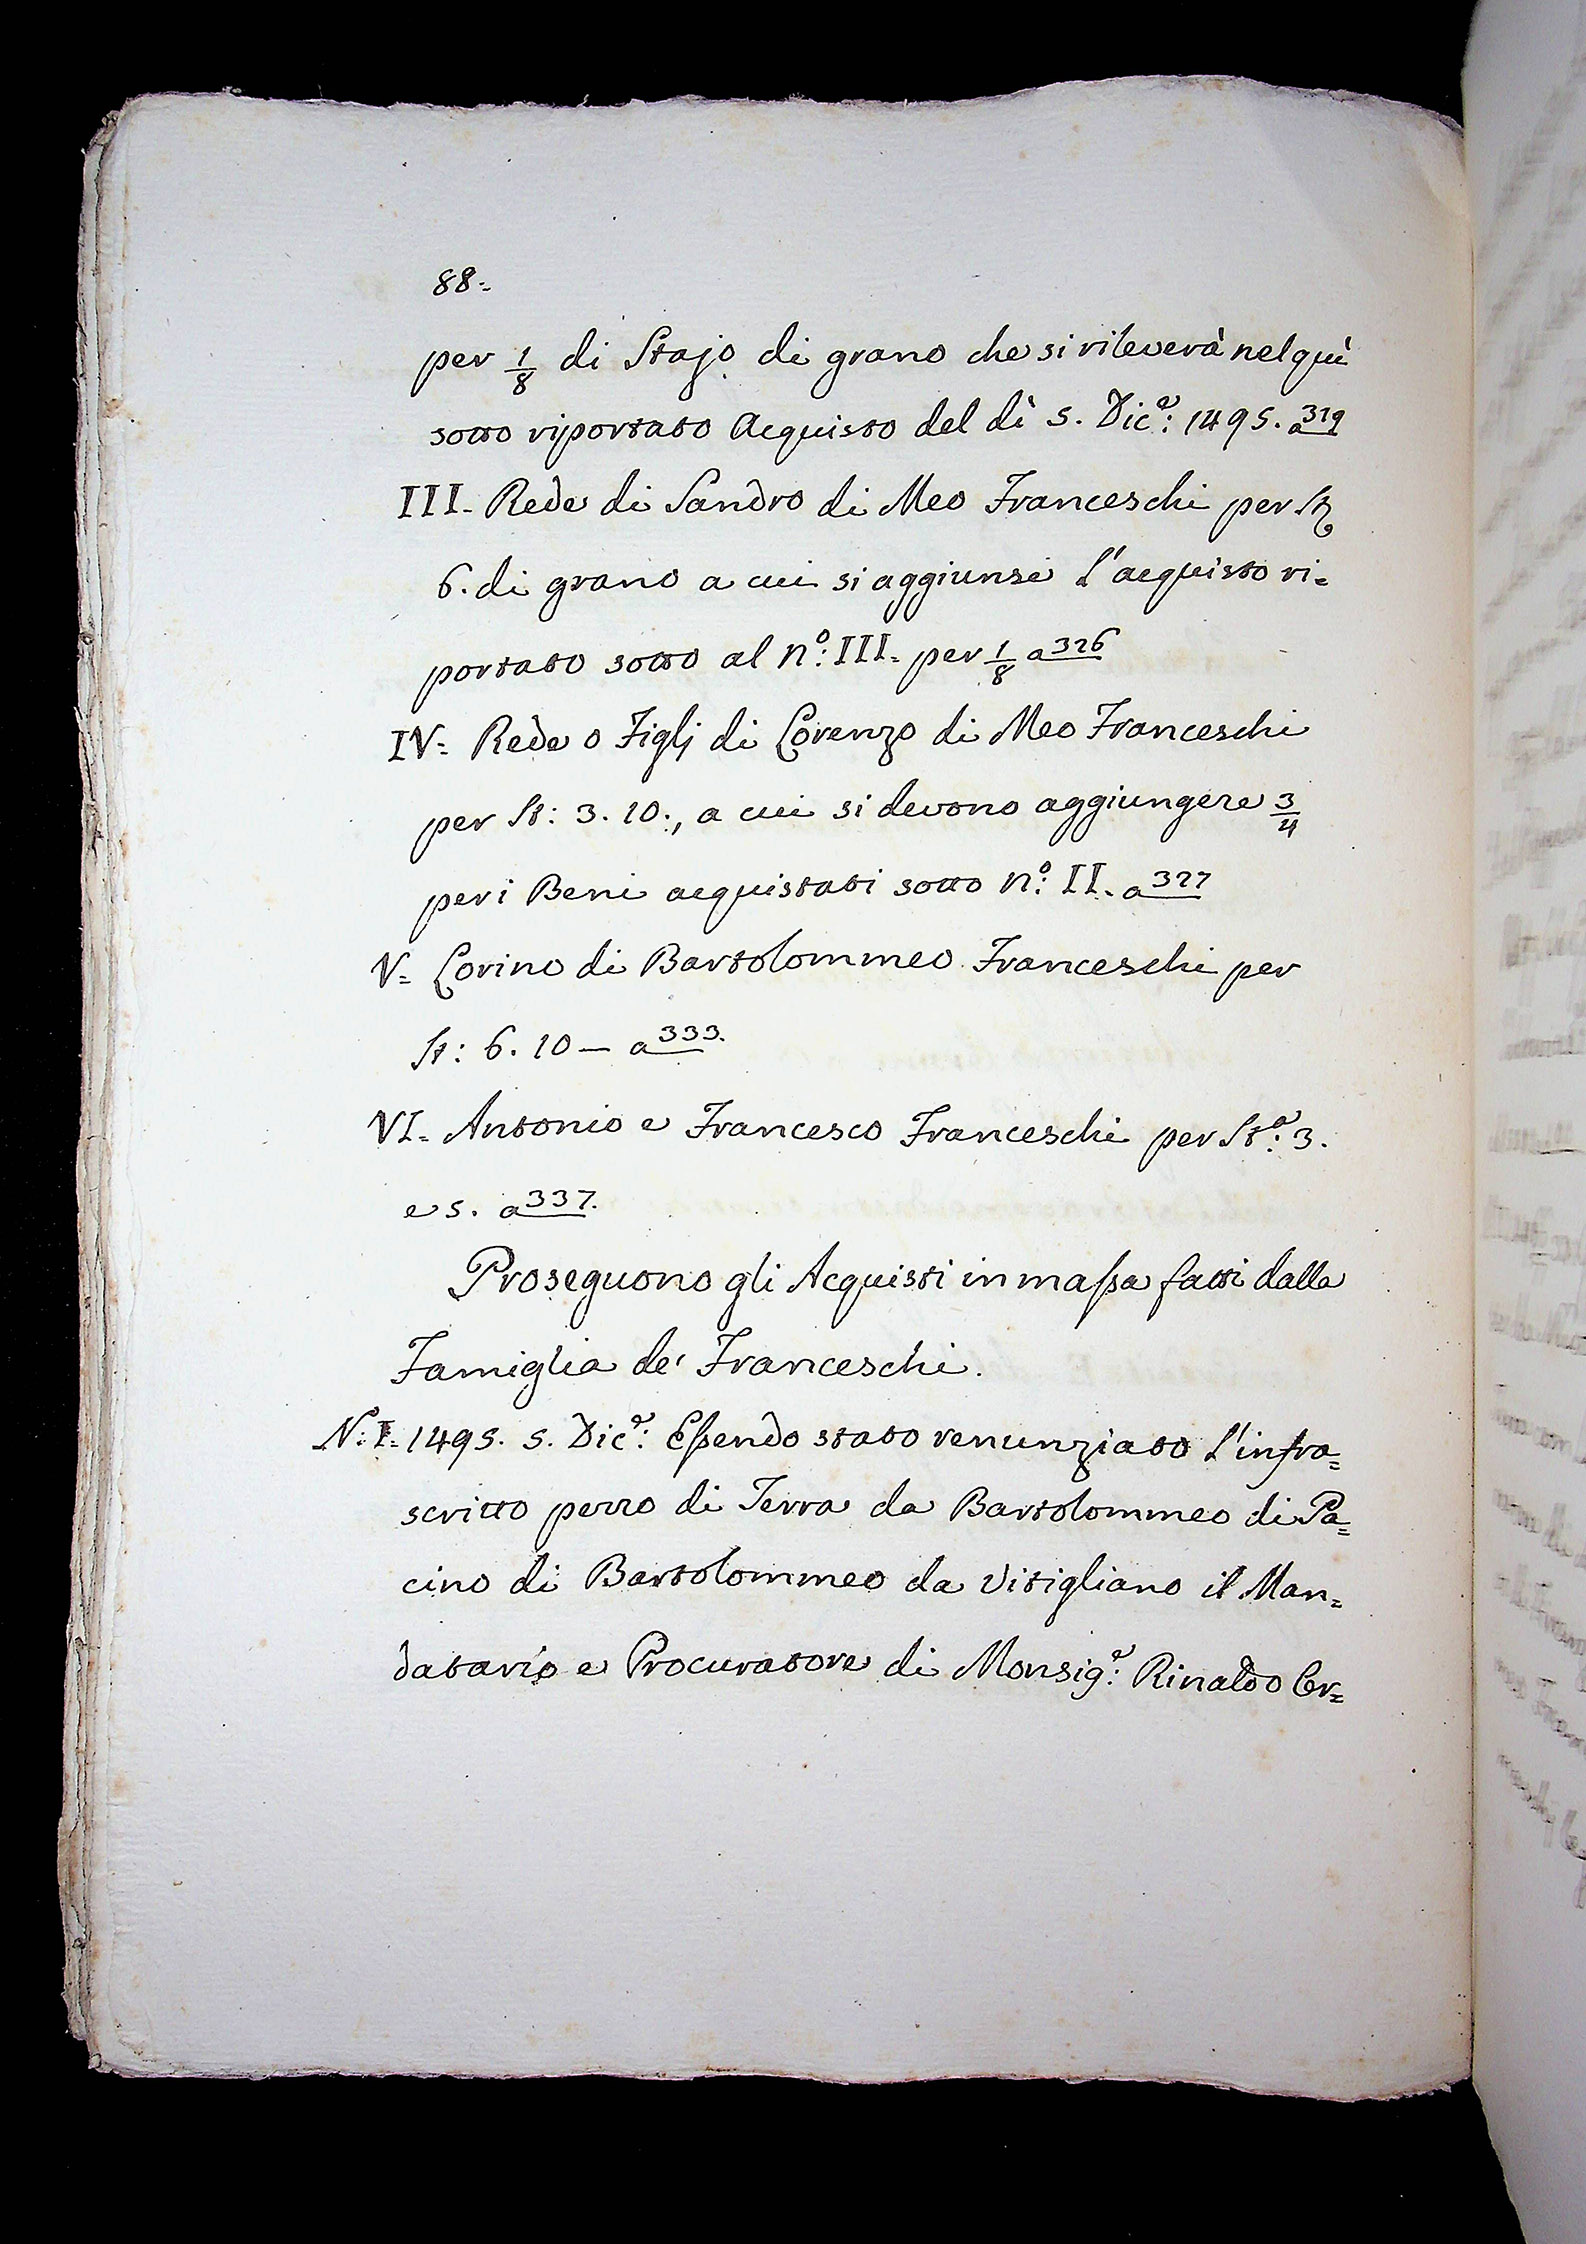 88.=
per 1/8 di Stajo di grano che si rileverà nel quì
sotto riportato Acquisto del dì 5. Dicᵉ: 1495. a 319
III. Rede di Sandro di Meo Franceschi per St.
6. di grano a cui si aggiunse l'acquisto ri=
portato sotto al nº: III. per 1/8 a 326
IV= Rede o Figlj di Lorenzo di Meo Franceschi
per St: 3. 10., a cui si devono aggiungere 3/4
per i Beni acquistati sotto nº: II. a 327
V= Lorino di Bartolommeo Franceschi per
St: 6. 10 — a 333.
VI= Antonio e Francesco Franceschi per Stᵃ: 3.
e 5. a 337.
Proseguono gli Acquisti in massa fatti dalla
Famiglia de' Franceschi.
N: I= 1495. 5. Dicᵉ: Essendo stato renunziato l'infra=
scritto pezzo di Terra da Bartolommeo di Pa=
cino di Bartolommeo da Vitigliano il Man=
datario e Procuratore di Monsigᵉ: Rinaldo Or=